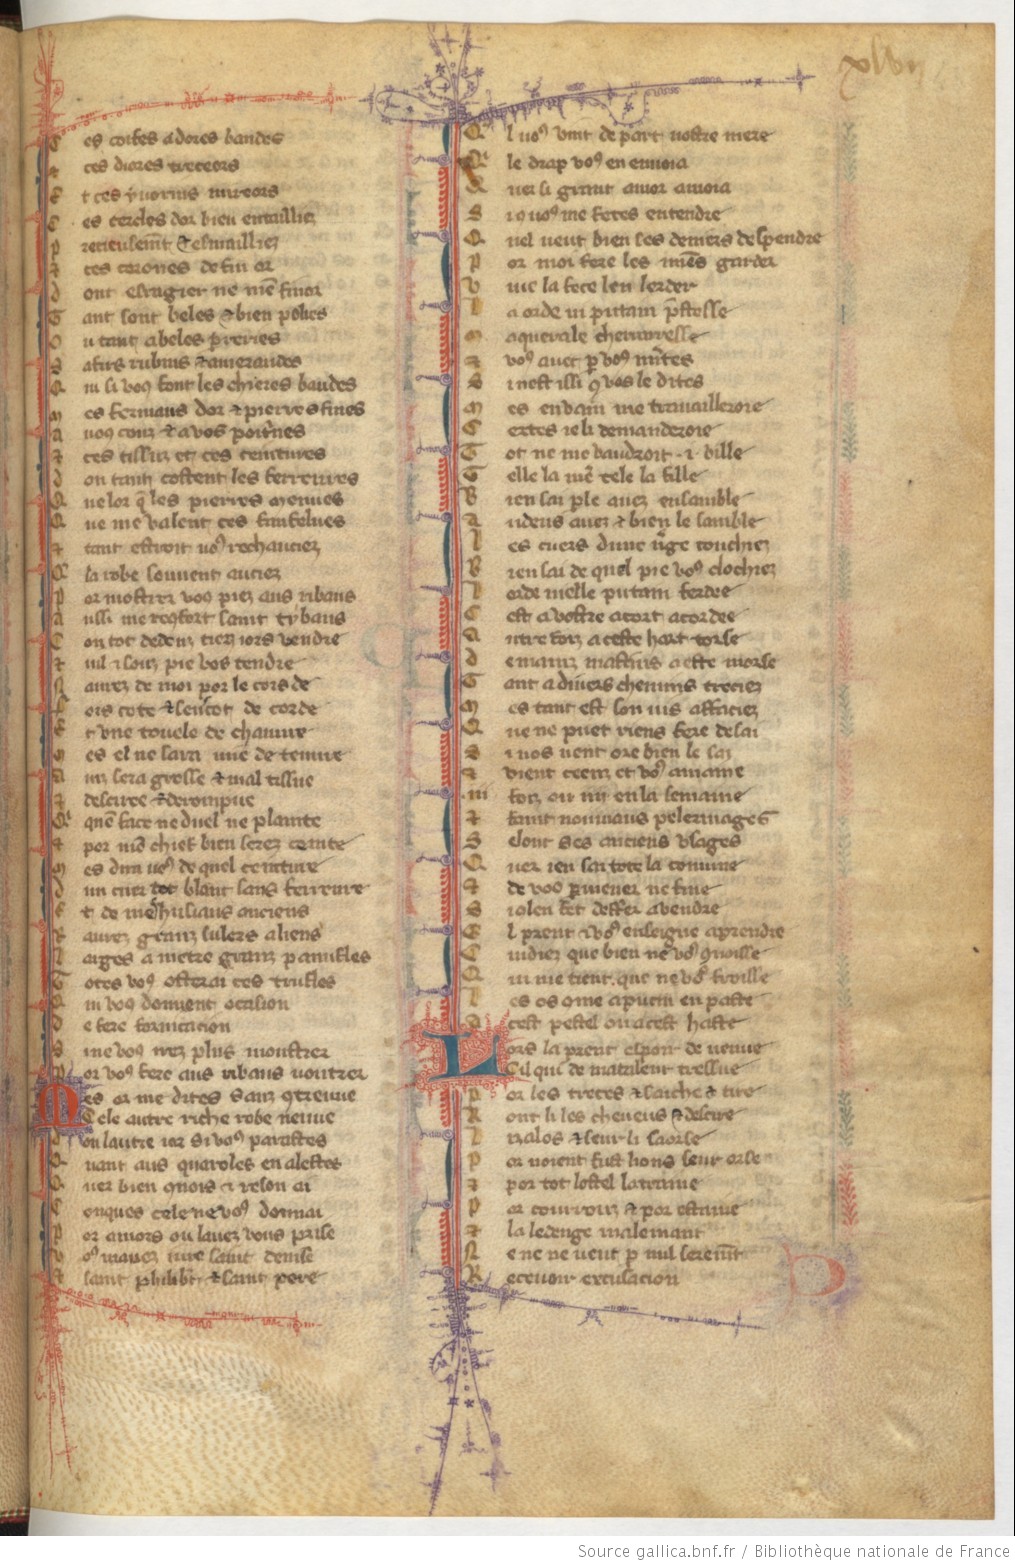 xlvii
C es coifes a dores bandes
E t ces yvorins mireors
C es cercles dor bien entailliez
p recieusemt & esmailliez
& ces corones de fin or
d ont esragier ne me finor
T ant sont beles & bien polies
O u tant a beles perreries
S afirs rubins & esmeraudes
Q ui si vous font les chieres baudes
C es fermaus dor & pierres fines
A vos couz & a vos poitrines
& ces tissuz et ces ceintures
d ont tant costent les ferreures
Q ue lor q les pierres menues
Q ue me valent ces fanfelues
& tant estroit vos rechauciez
Q la robe souvent auciez
p or mostrer vos piez aus ribaus
A issi me confort saint tybaus
Q ue tot dedenz tierz iors vendre
& vil & souz pie vos tendre
N aurez de moi por le cors de
F ors cote & seurcot de corde
E t une touele de chanvre
M es el ne sera mie de tenvre
A inz sera grosse & mal tissue
& desciree & derompue
Q qen face ne duel ne plainte
& por mon chief bien serez ceinte
M es dirai vos de quel ceinture
d un cuer tot blanc sans ferreure
E t de mes housiaus anciens
N aurez granz sulers a liens
L arges a metre granz panufles
T otes vos osterai ces trufles
Q ui vos donnent ocasion
d e fere fornicacion
S i ne vos irez plus monstrer
P or vos fere aus ribaus voutrer
M es or me dites sanz qtreuve
Cele autre riche robe neuve
d on lautre ior si vos parastes
Q uant aus quaroles en alastes
Q uer bien quois & reson ai
C onques cele ne vos donnai
P or amors ou lavez vous prise
V os mavez iure saint denise
& saint philibt & saint pere
Q l vos vint de part vostre mere
Q le drap vos en envoia
Q uer si grant amor a moia
S i q vos me fetes entendre
Q uel veut bien ses deniers despendre
P or moi fere les miens garder
V ive la face len larder
L a orde vi putain pstesse
M aquerele cheraresse
& vos avec p vos mites
S i nest issi q vos le dites
M es en vain me travailleroie
C ertes ie li demanderoie
T ot ne me vaudroit .i. bille
T elle la me tele la fille
B ien sai ple avez ensamble
A udeus avez & bien le samble
L es cuers dune vge touchiez
B ien sai de quel pie vos clochiez
L orde vielle putain fardee
C est a vostre acort acordee
A utre foiz a ceste hart torse
d e mainz mastins a este morse
T ant a divers chemins traciez
M es tant est son vis effaciez
Q ue ne puet riens fere de sai
S i vos vent ore bien le sai
& vient ceenz et vos amaine
.iii. foiz ou iiij en la semaine
& faint nouviaus pelerinages
S elonc ses anciens usages
Q uer ien sai tote la couvine
& de vos pmener ne fine
S i o len fet destrier a vendre
E l prent & vos enseigne a prendre
C uidiez que bien ne vos quoisse
Q ui me tient que ne vos froisse
L es os ome a pucin en paste
A cest pestel ou a cest haste
L ors la prent espoir de venue
Cil qui de maltalent tressue
p or les treces & sache & tire
R ont li les cheveus & descire
L i ialos & seur li saorse
P or noient fust lions seur orse
& por tot lostel la traine
P or courrouz & por estaine
& la ledenge malemant
N e ne ne veut p nul seremt
R ecevoir excusacion
Source gallica.bnf.fr / Bibliothèque nationale de France